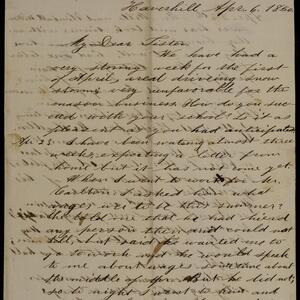 Haverhill Apr. 6. 1860
My Dear Sister
We have had a
very stormy week for the first
of April, areal driveing snow
storm; very unfavorable for the
mason business. How do you suc
ceed with your school? Is it as
pleasent as you had anticipated
Apr. 23. I have been wating almost three
weeks, expecting a letter from
home but it has not come yet
When I went to work for Mr.
Carlton I asked him what
wages we to be this summer?
he told me that he had hiered
any person then and could not
tell, but said he wanted me to
go to work and he would speak
to me about wages some about
the middle of Apr. but he did not,
so to night I went to him and